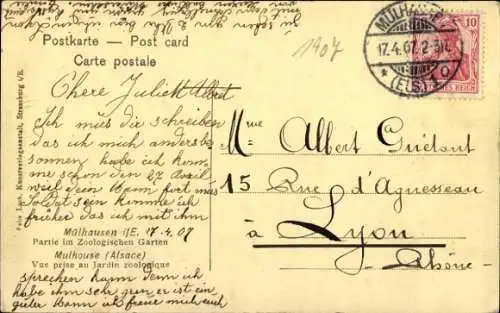 Postkarte — Post card
Carte postale
1907
MÜLHAUSEN
17.4.07. 2-3N.
* (ELS) 1 o
10
DEUTSCHES REICH
Chere Juliette
Ich mus dir schreiben
das ich mich anders be
sonnen habe ich kom
me schon den 27 April
weil dein Mann fort mus
Soldat sein komme ich
früher das ich mit ihm
Mme Albert Guétant
15 Rue d'Aguesseau
à Lyon
Rhône
Mülhausen i/E. 17.4.07
Partie im Zoologischen Garten
Mulhouse (Alsace)
Vue prise au Jardin zoologique
sprechen kann denn ich
habe ihn sehr gern er ist ein
guter Mann ich freue mich euch
Felix Luib, Kunstverlagsanstalt, Strassburg i/E.